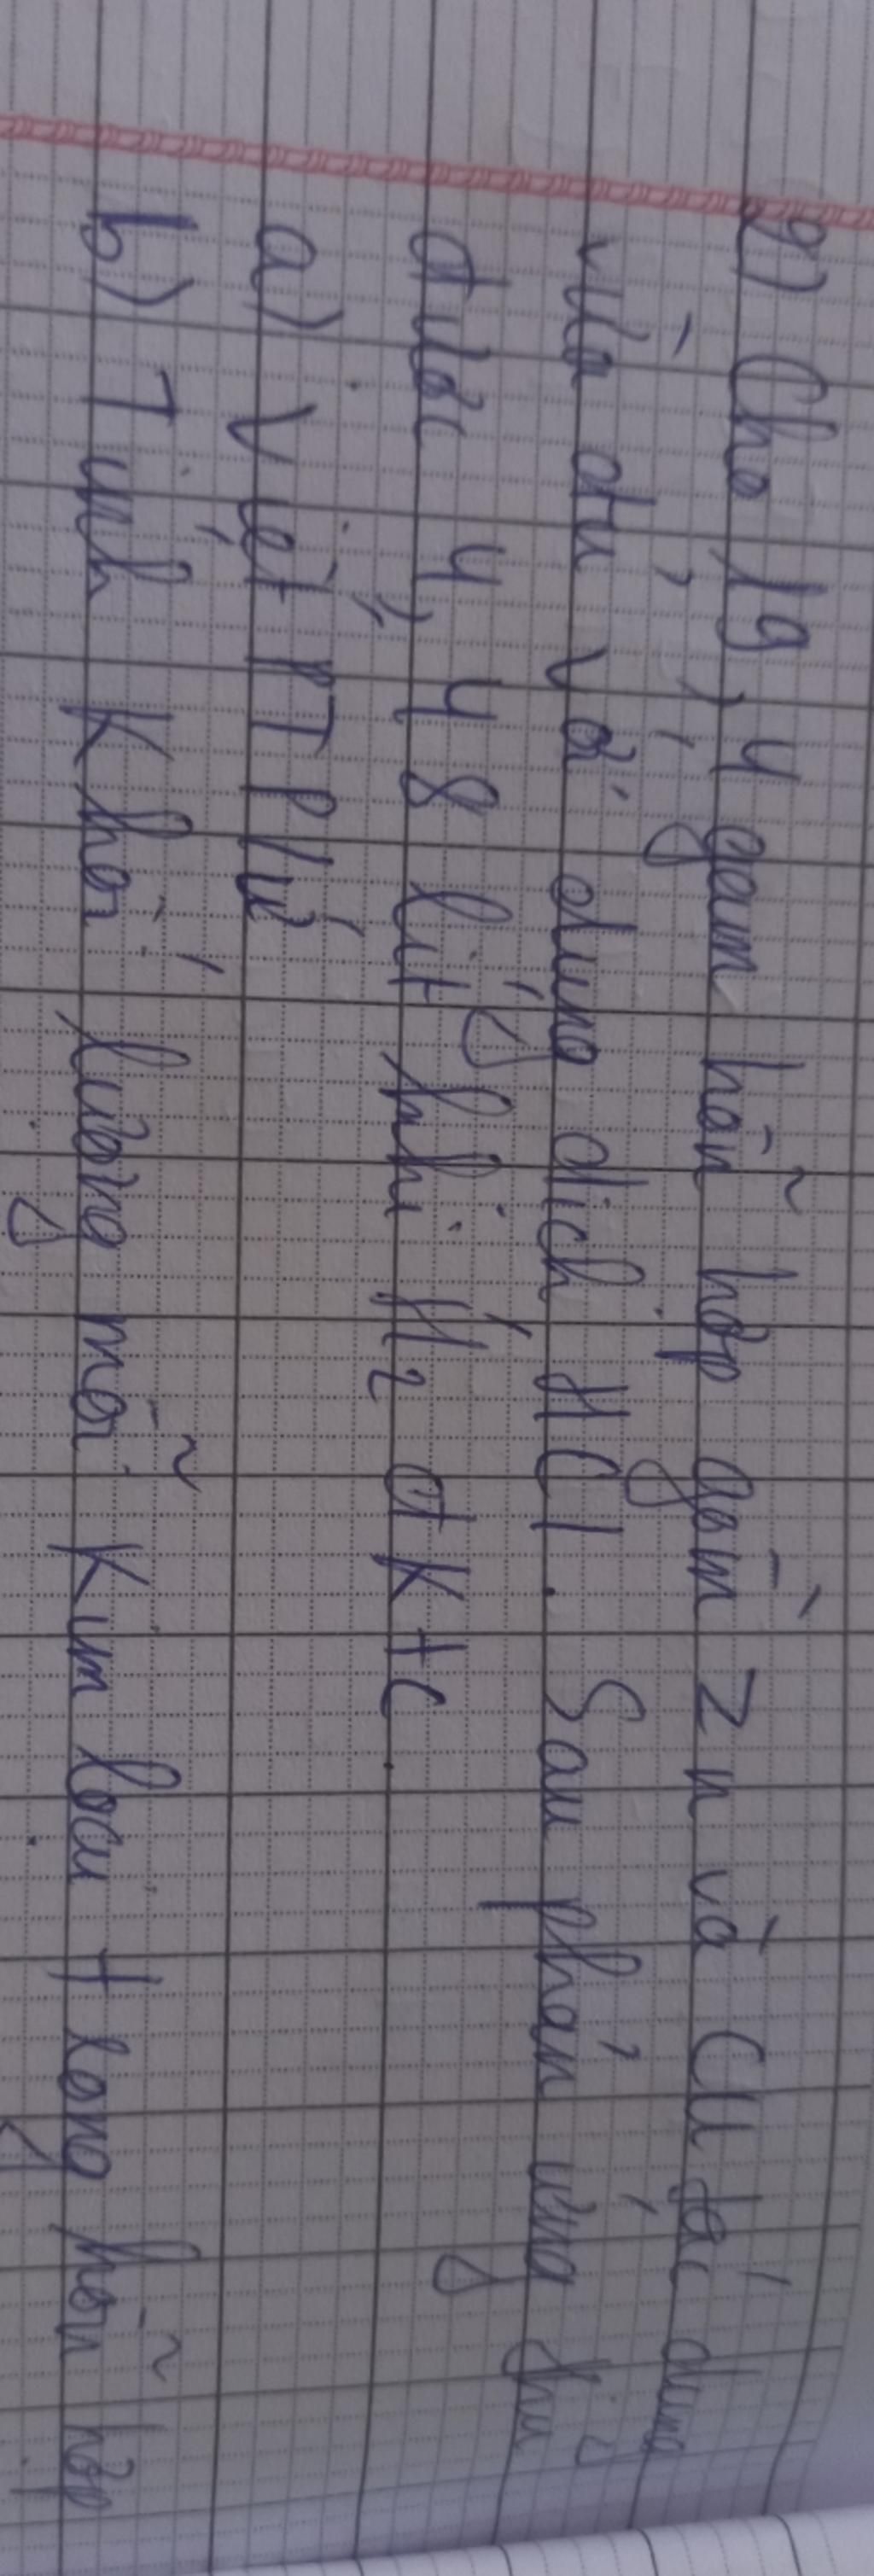 2) Cho 19,4 gam hỗn hợp gồm Zn và Cu tác dụng
vừa đủ với dung dịch HCl. Sau phản ứng thu
được 4,48 lít khí H2 đktc.
a) Viết PTPƯ
b) Tính khối lượng mỗi kim loại trong hỗn hợp